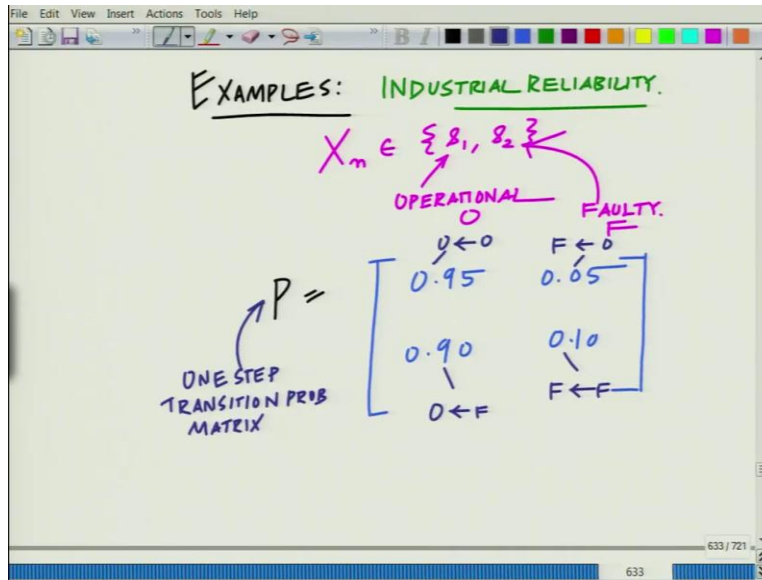 File Edit View Insert Actions Tools Help
B I
EXAMPLES: INDUSTRIAL RELIABILITY.
Xn ∈ {s1, s2}
OPERATIONAL
O
FAULTY.
F
O←O F←O
P = 0.95 0.05
0.90 0.10
O←F F←F
ONE STEP
TRANSITION PROB
MATRIX
633 / 721
633